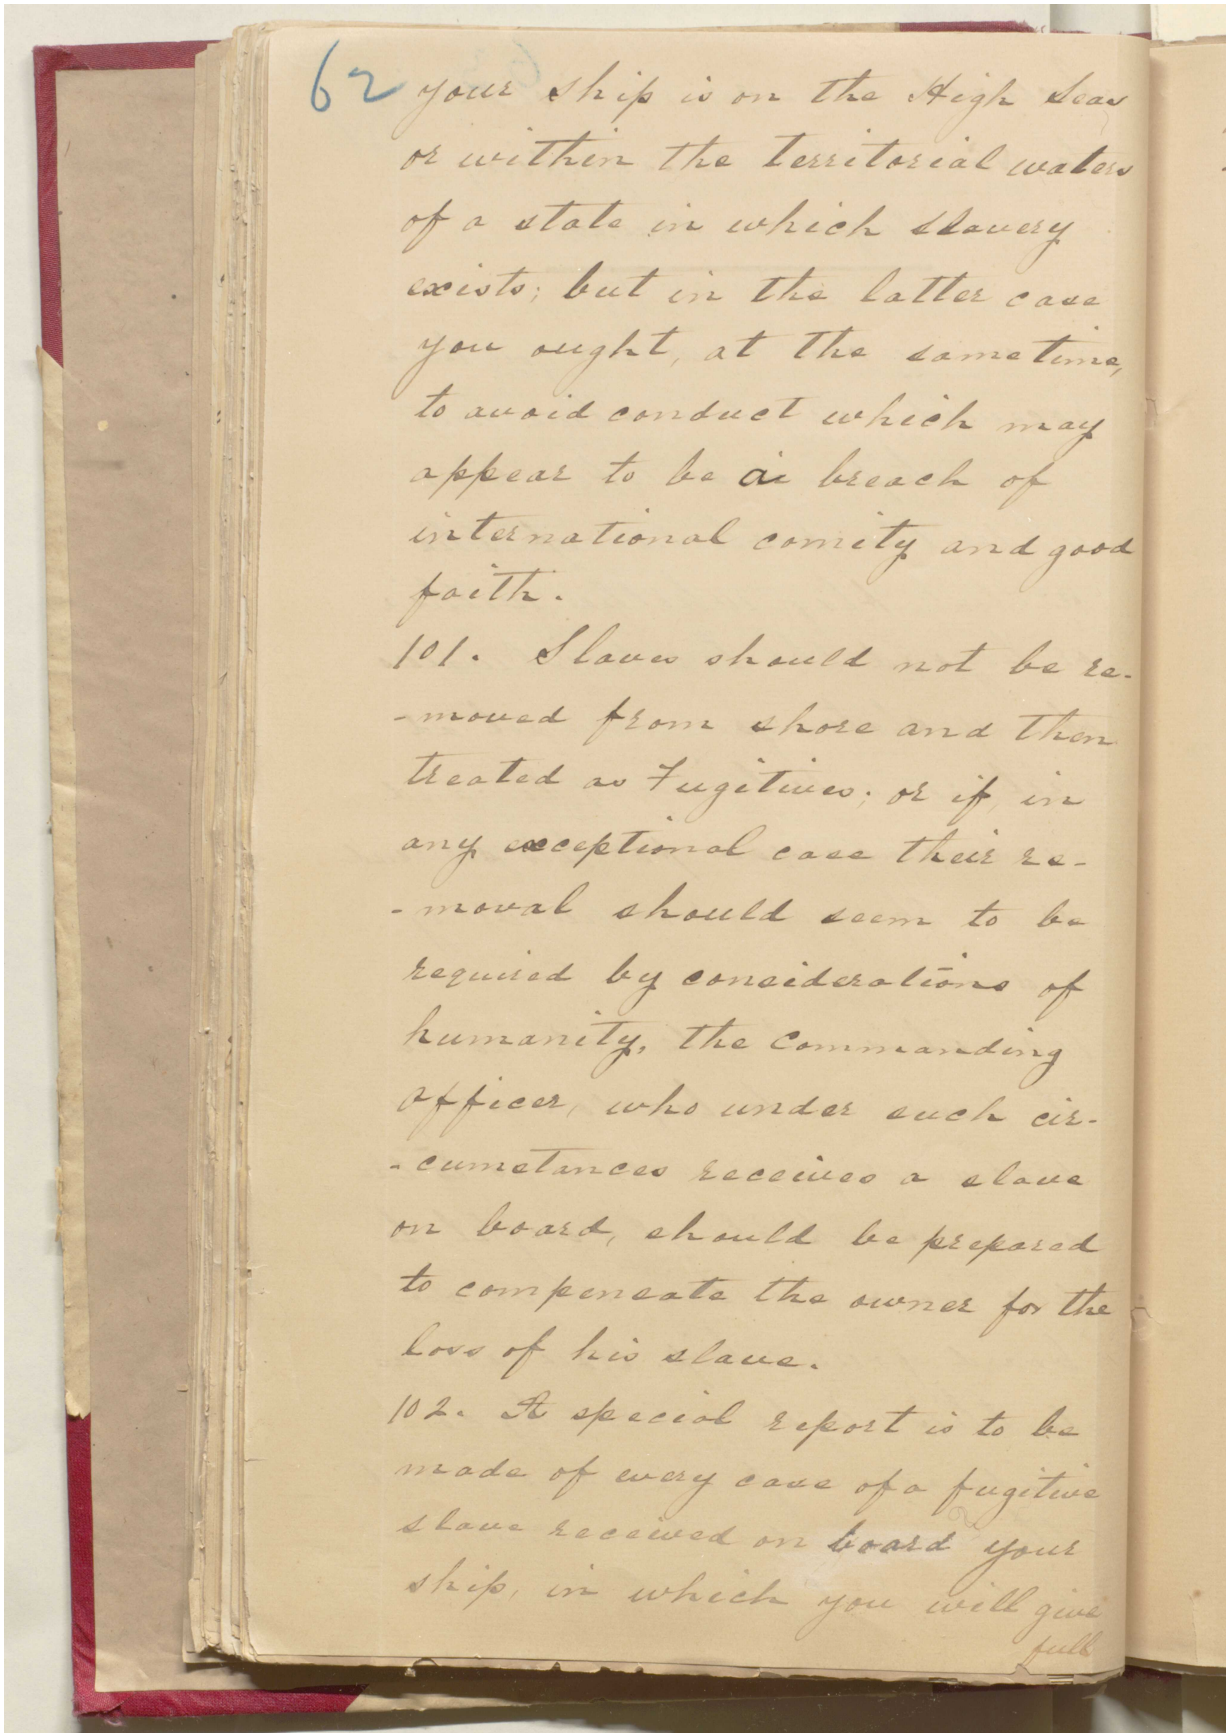 62
your ship is on the High Seas
or within the territorial waters
of a state in which slavery
exists; but in the latter case
you ought, at the sametime,
to avoid conduct which may
appear to be a breach of
international comity and good
faith.
101. Slaves should not be re-
-moved from shore and then
treated as Fugitives; or if, in
any exceptional case their re-
-moval should seem to be
required by considerations of
humanity, the Commanding
officer, who under such cir-
-cumstances receives a slave
on board, should be prepared
to compensate the owner for the
loss of his slave.
102. A special report is to be
made of every case of a fugitive
slave received on board your
ship, in which you will give
full